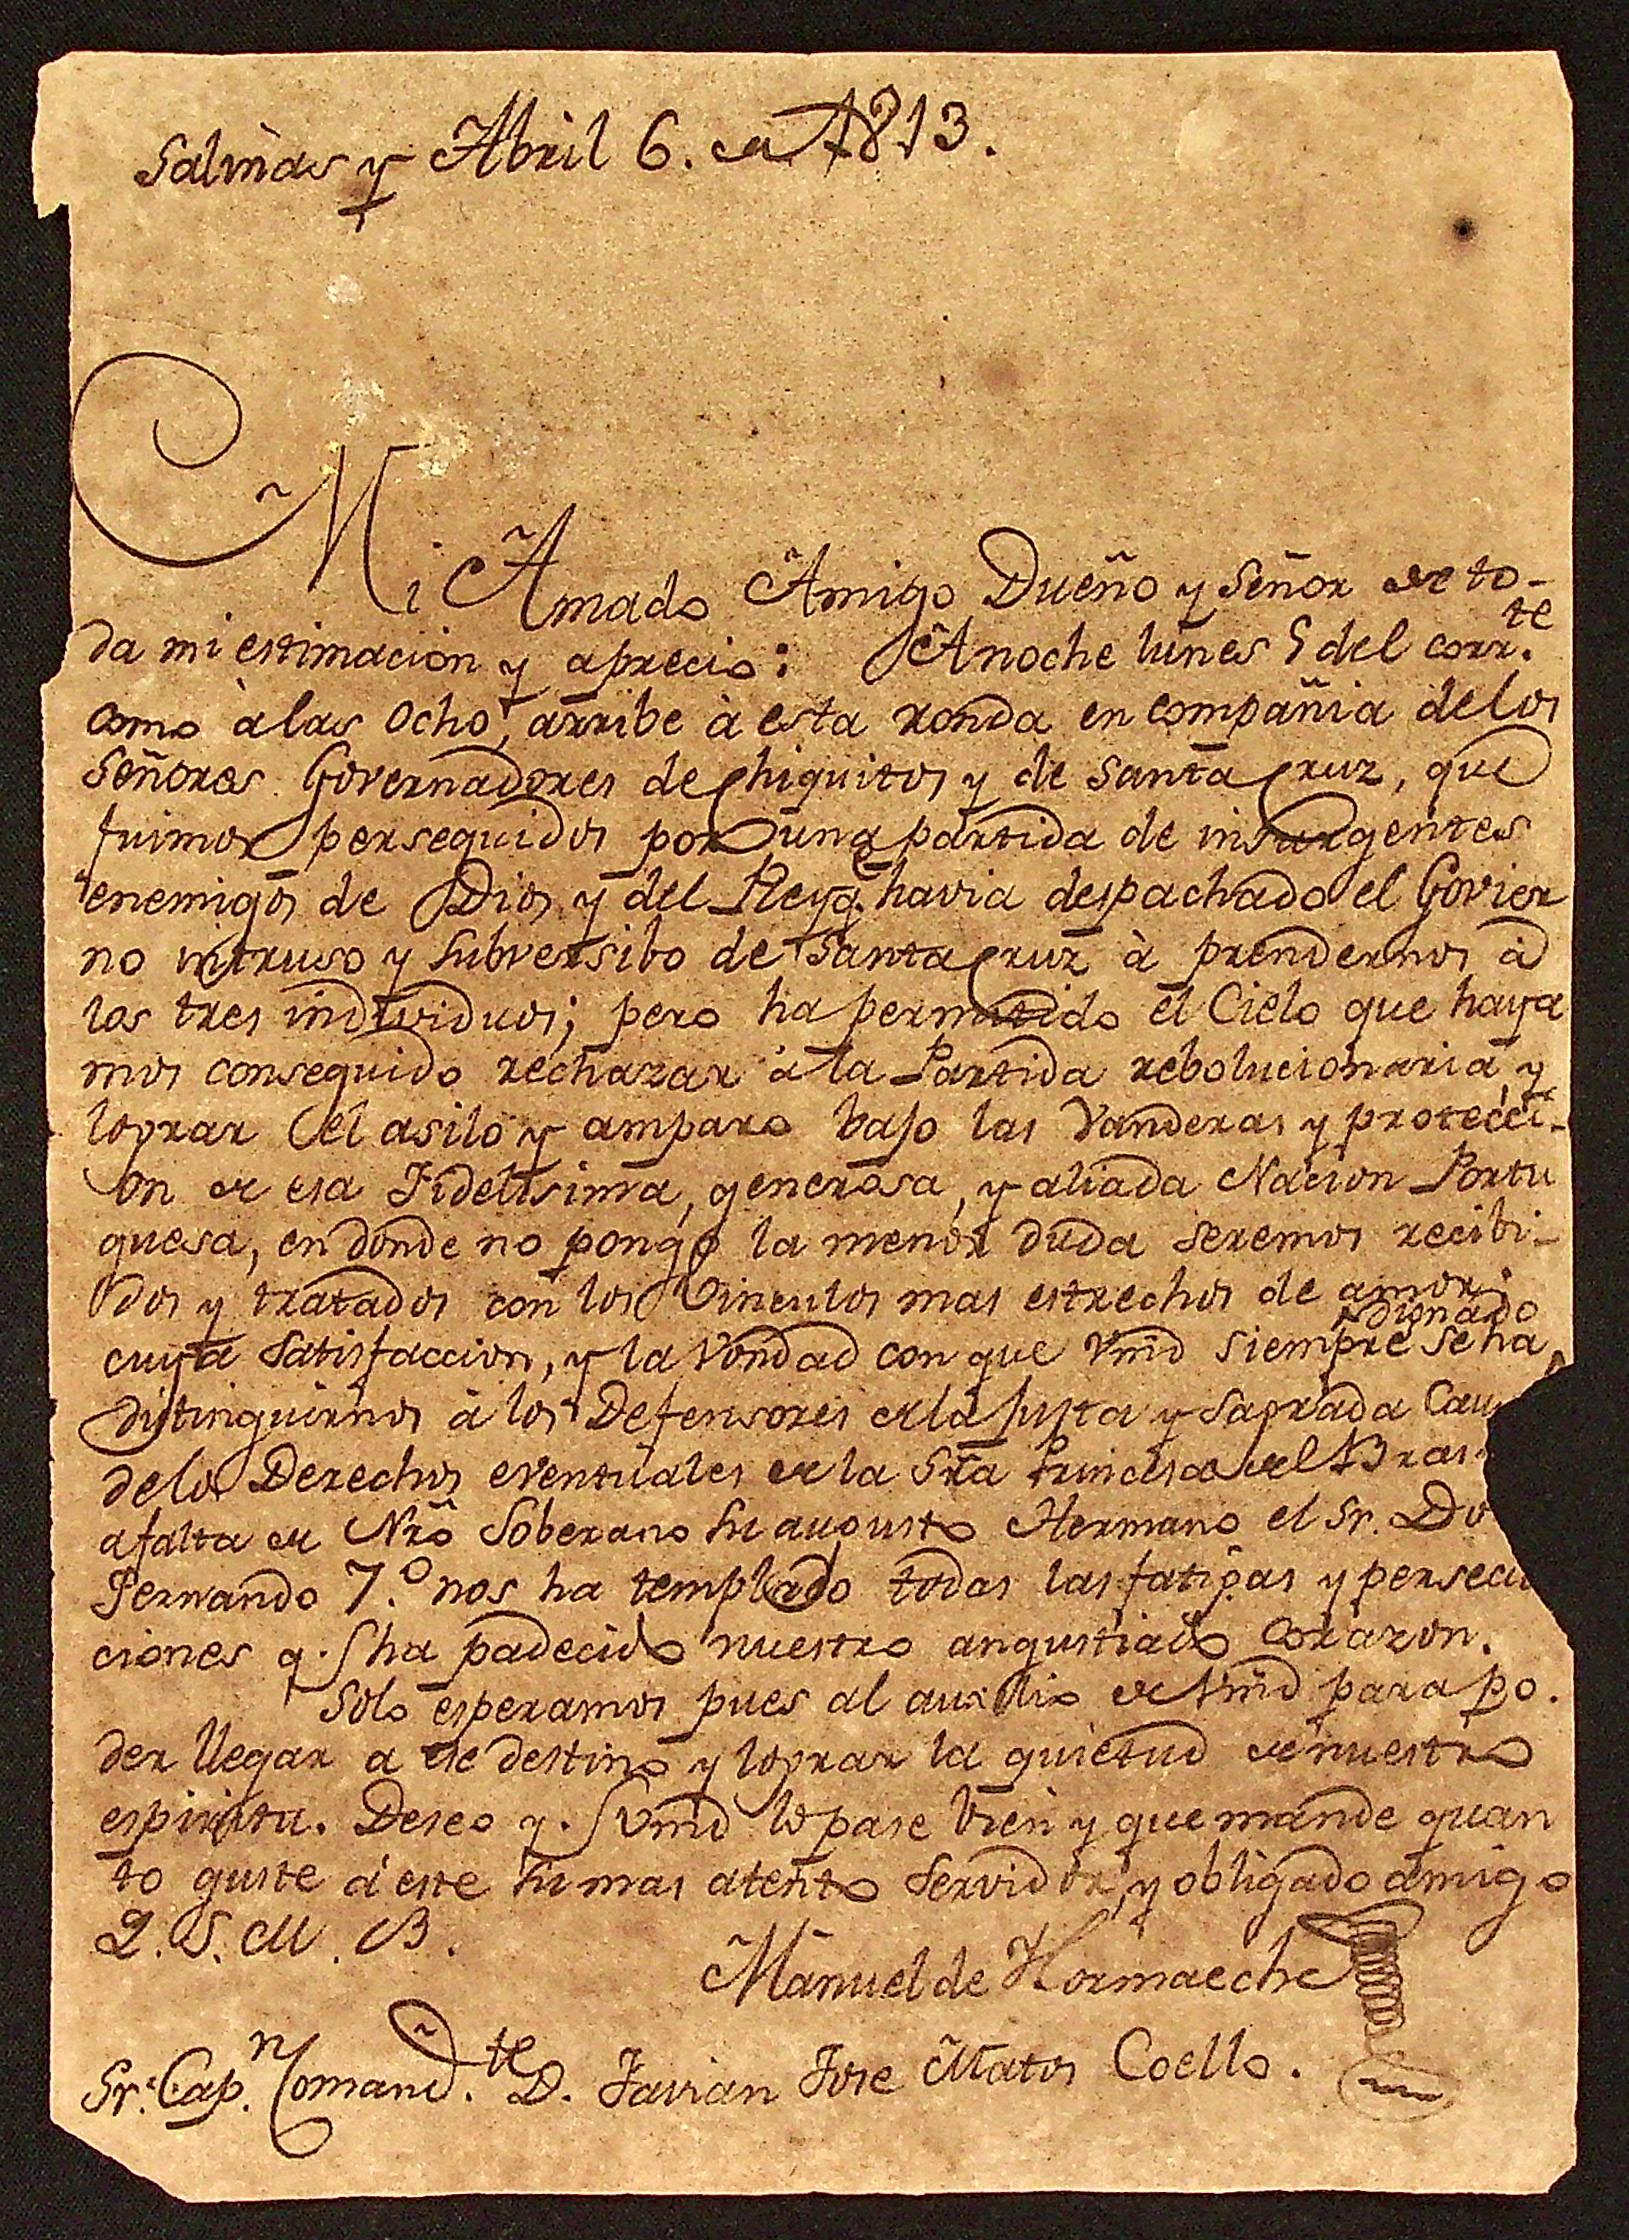 Salinas y Abril 6. de 1813.
Mi Amado Amigo Dueño y Señor de to-
da mi estimacion y aprecio: Anoche lunes 5 del corr.te
como à las ocho, arribe à esta ronda en compañia delos
Señores Governadores de Chiquitos y de Santa Cruz, que
fuimos perseguidos por una partida de insurgentes
enemigos de Dios y del Rey q.e havia despachado el Govier
no intruso y subversibo de Santa Cruz à prendernos à
los tres individuos; pero ha permitido el Cielo que haya
mos conseguido rechazar à la Partida rebolucionaria, y
lograr el asilo y amparo bajo las Vanderas y protecci-
on de esa Fidelisima, generosa, y aliada Nacion Portu
guesa, en donde no pongo la menor duda seremos recibi-
dos y tratados con los Vinculos mas estrechos de amor;
cuya satisfaccion, y la Vondad con que Vmd siempre se ha dignado
distinguirnos à los Defensores de la justa y Sagrada Cau
delos Derechos eventuales de la Sra Princesa del Bras
afalta de Nrõ Soberano su augusto Hermano el Sr. Do
Fernando 7.o nos ha templado todas las fatigas y persecu
ciones q.e ha padecido nuestro angustiado corazon.
Solo esperamos pues al auxilio de Vmd para po.
der llegar a ese destino y lograr la quietud de nuestro
espiritu. Deseo q.e Vmd lo pase bien y que mande quan
to guste á este su mas atento Servidor, y obligado amigo
Q. S. M. B.
Manuel de Hormaeche
Sr. Cap.n Comand.te D. Favian Jose Matos Coello.